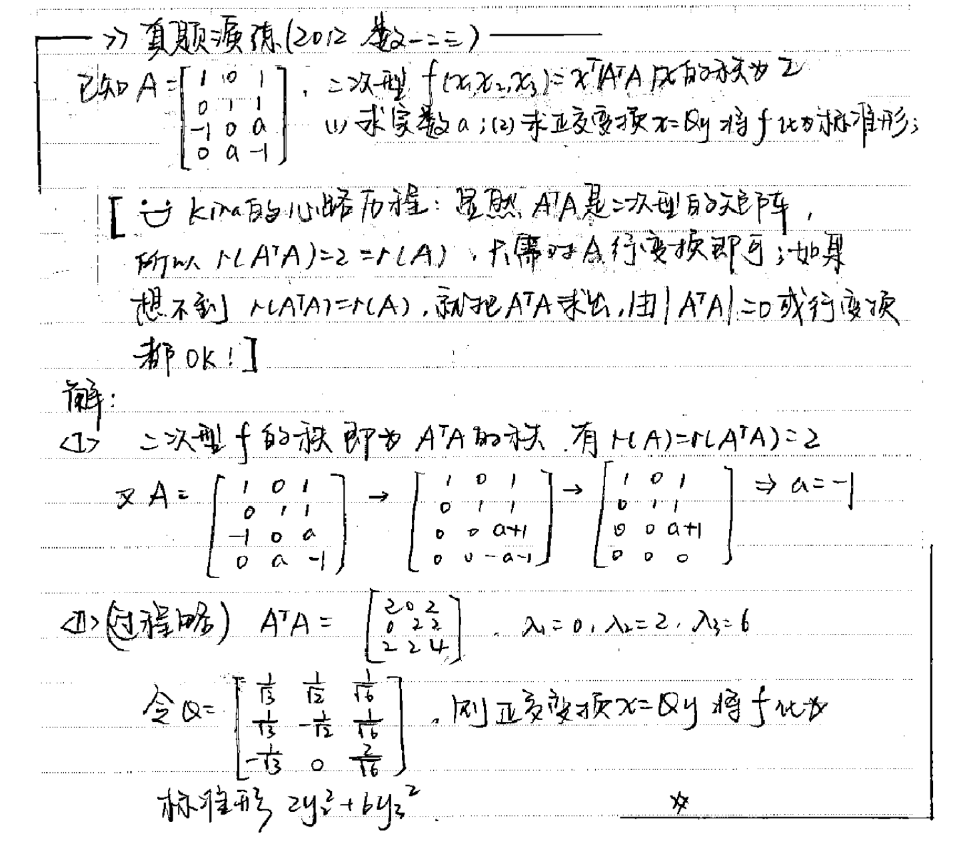 >> 真题演练(2012 数一二三)
已知 A=[1 0 1; 0 1 1; -1 0 a; 0 a -1], 二次型 f(x₁,x₂,x₃)=xᵀ(AᵀA)x的秩为2
(1) 求实数a;(2) 求正交变换x=Qy将f化为标准形;
[ kira的心路历程: 显然 AᵀA是二次型的矩阵,
所以 r(AᵀA)=2=r(A), 只需对A行变换即可;如果
想不到 r(AᵀA)=r(A),就把AᵀA求出,由|AᵀA|=0或行变换
都OK!]
解:
<I> 二次型f的秩即为AᵀA的秩.有r(A)=r(AᵀA)=2
又A=[1 0 1; 0 1 1; -1 0 a; 0 a -1] → [1 0 1; 0 1 1; 0 0 a+1; 0 0 -a-1] → [1 0 1; 0 1 1; 0 0 a+1; 0 0 0] ⇒ a=-1
<II>(过程略) AᵀA=[2 0 2; 0 2 2; 2 2 4]. λ₁=0,λ₂=2,λ₃=6
令Q=[1/√3 1/√2 1/√6; 1/√3 -1/√2 1/√6; -1/√3 0 2/√6], 则正交变换x=Qy将f化为
标准形 2y₂²+6y₃². ☆